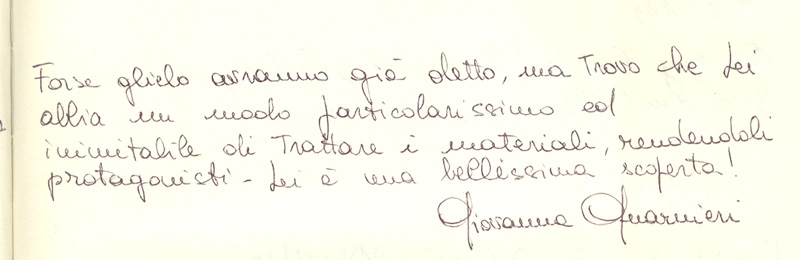 Forse glielo avranno già detto, ma Trovo che Lei
abbia un modo particolarissimo ed
inimitabile di Trattare i materiali, rendendoli
protagonisti - Lei è una bellissima scoperta!
Giovanna Guarnieri